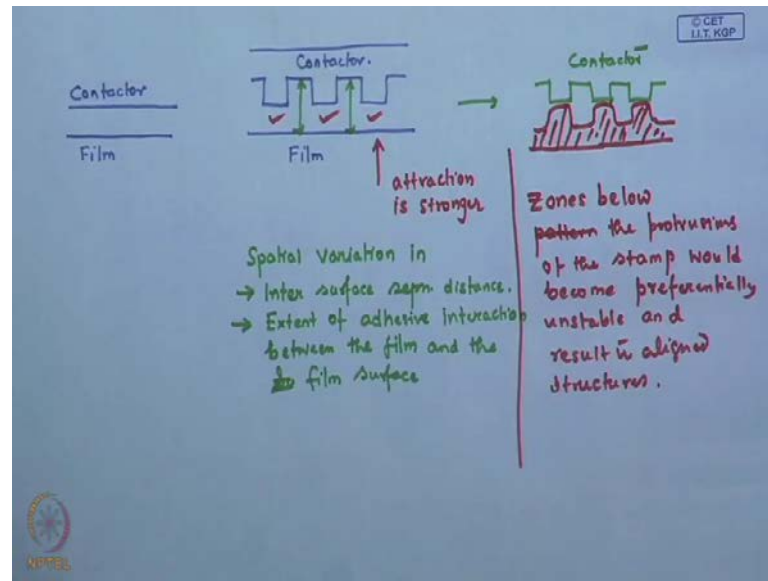 © CET
I.I.T. KGP
Contactor
Film
Contactor.
Film
attraction
is stronger
Spatial Variation in
→ Inter surface sepn. distance.
→ Extent of adhesive interaction
between the film and the
film surface
Contactor
Zones below
pattern the protrusions
of the stamp would
become preferentially
unstable and
result in aligned
structures.
NPTEL